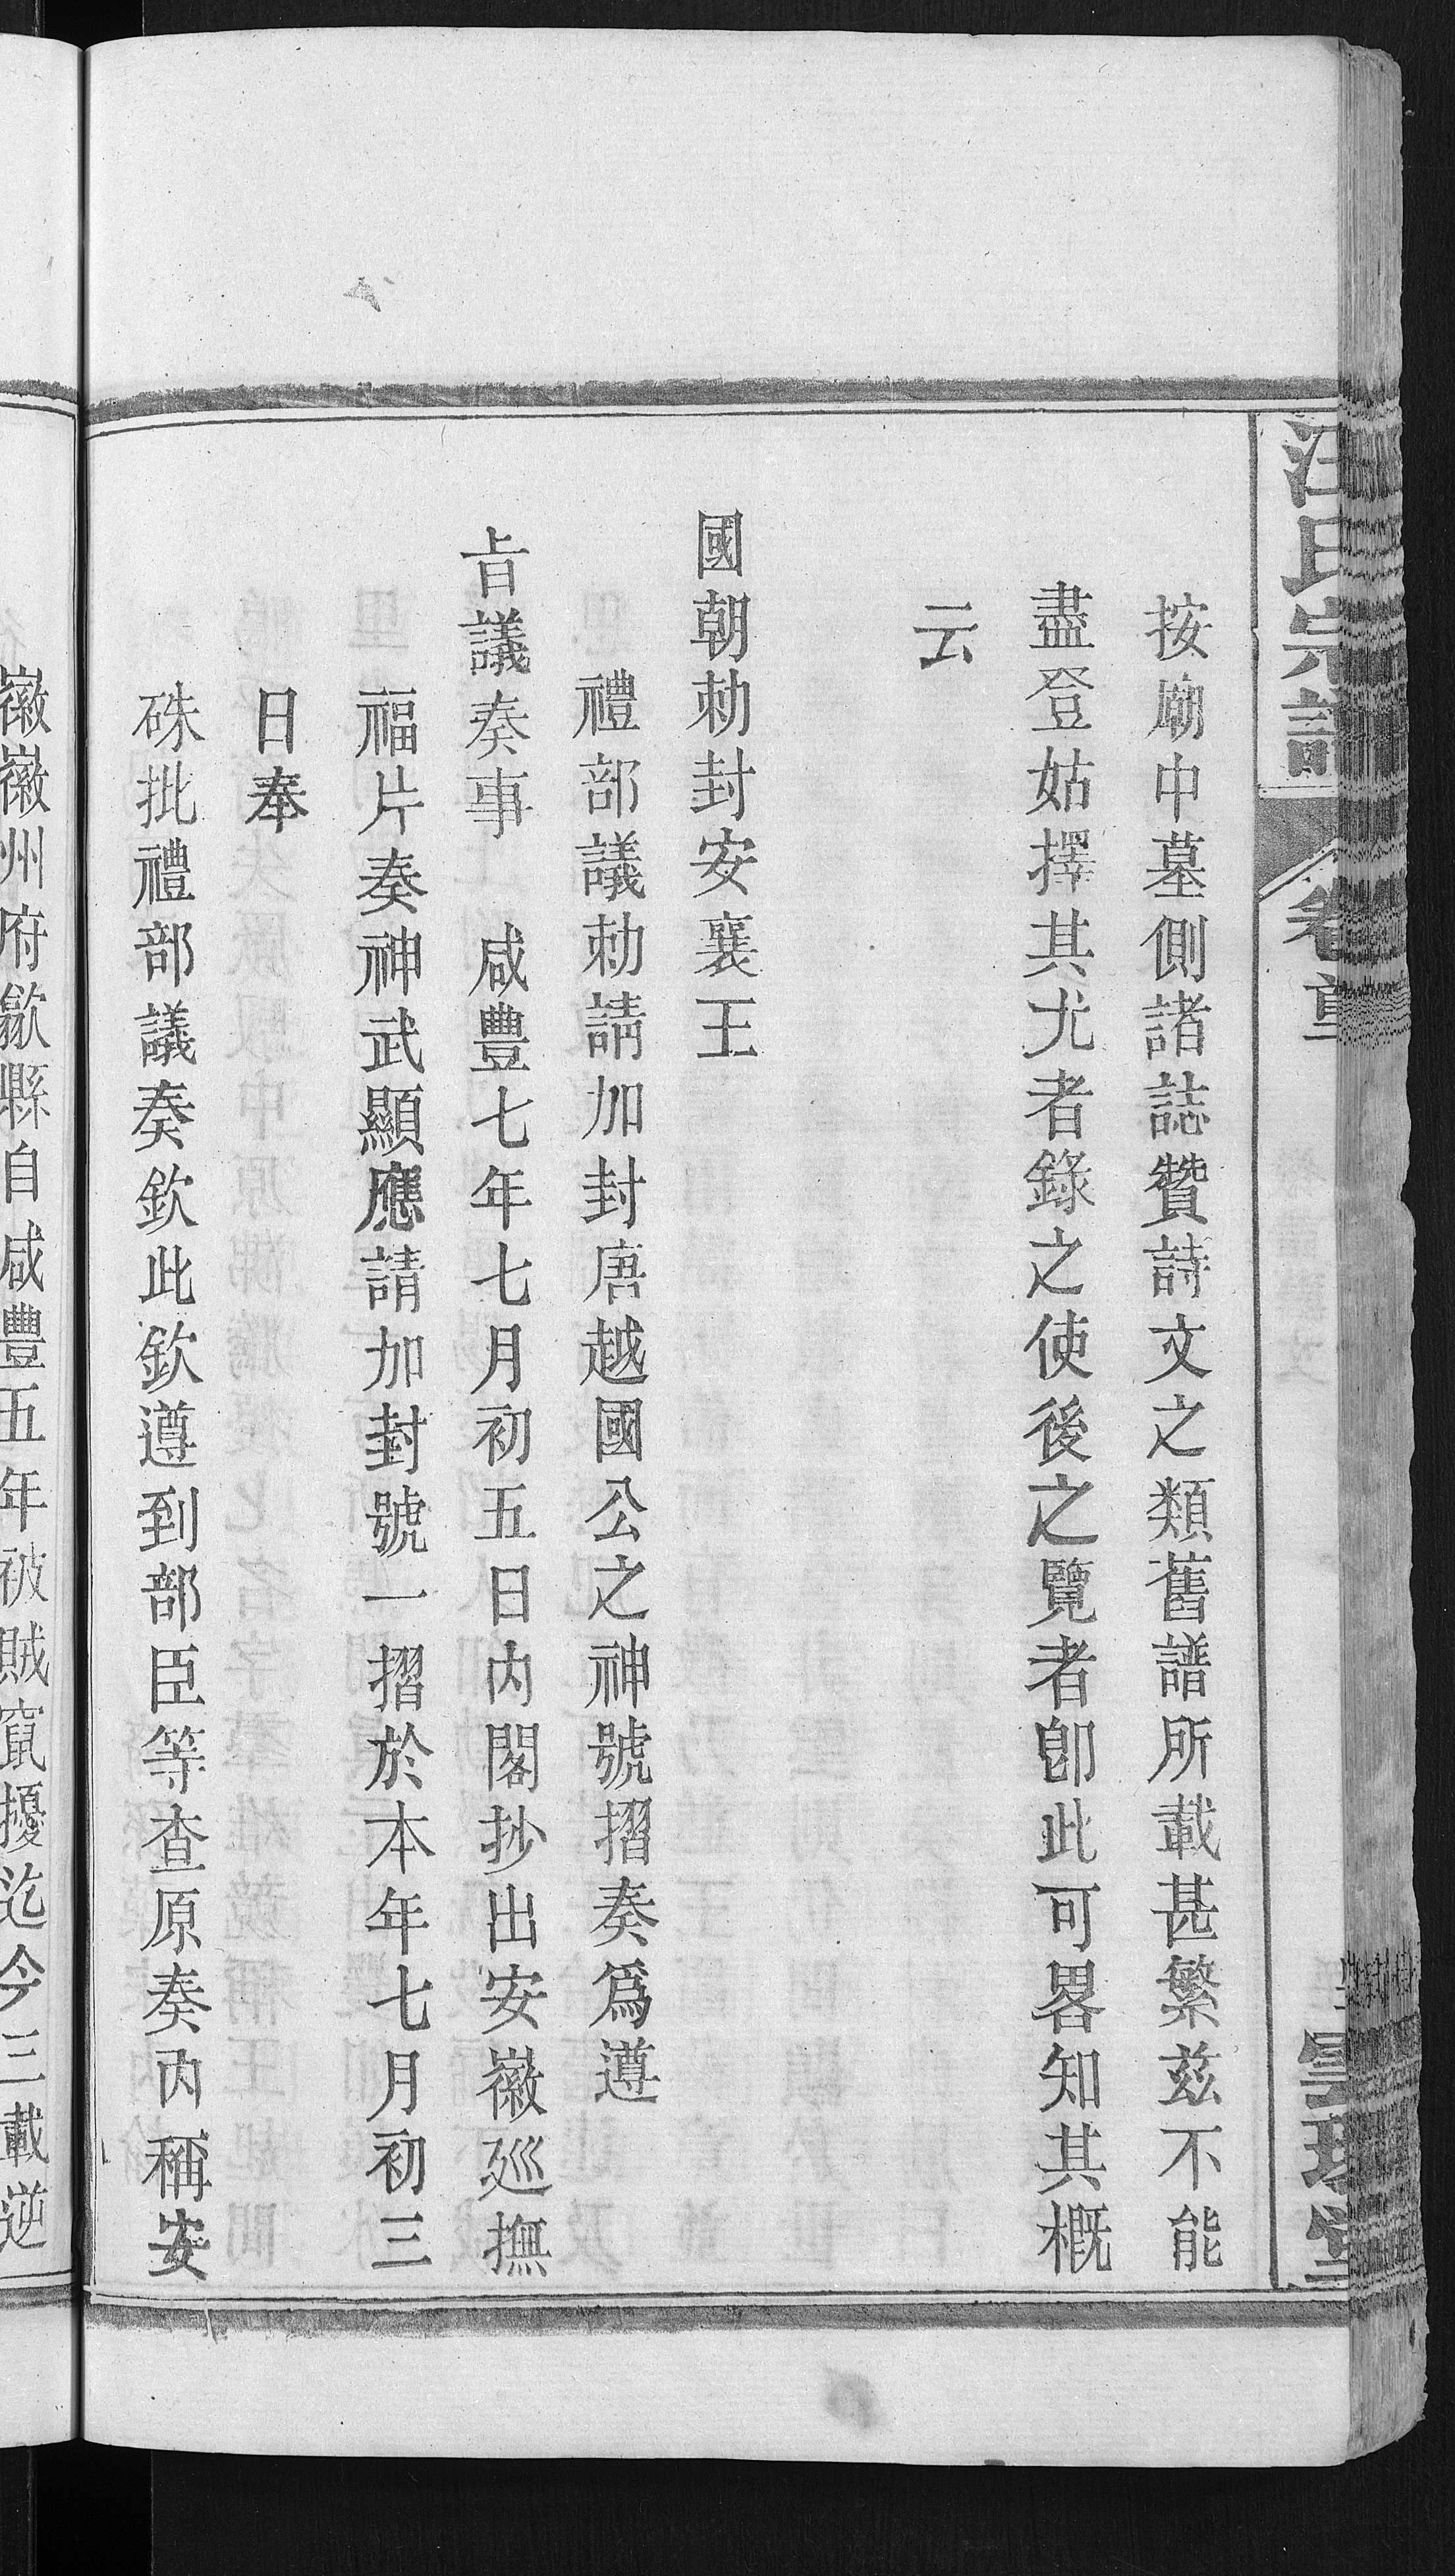 汪氏宗譜 卷首
按廟中墓側諸誌贊詩文之類舊譜所載甚繁兹不能
盡登姑擇其尤者錄之使後之覽者卽此可畧知其概
云
國朝勅封安襄王
禮部議勅請加封唐越國公之神號摺奏爲遵
旨議奏事 咸豐七年七月初五日內閣抄出安徽廵撫
福片奏神武顯應請加封號一摺於本年七月初三
日奉
硃批禮部議奏欽此欽遵到部臣等查原奏內稱安
徽徽州府歙縣自咸豐五年被賊竄擾迄今三載逆